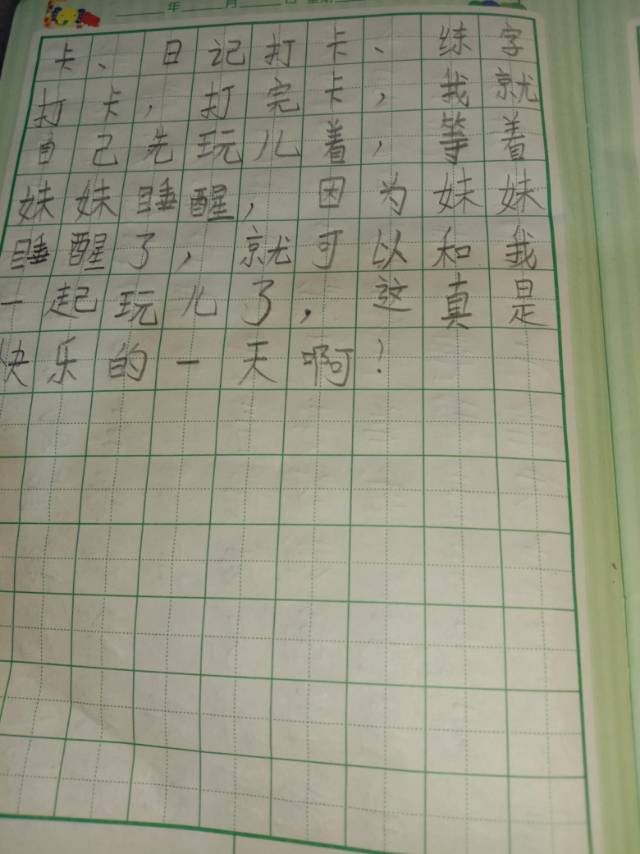 年 月 日 星期
卡、日记打卡、练字
打卡，打完卡，我就
自己先玩儿着，等着
妹妹睡醒，因为妹妹
睡醒了，就可以和我
一起玩儿了，这真是
快乐的一天啊！